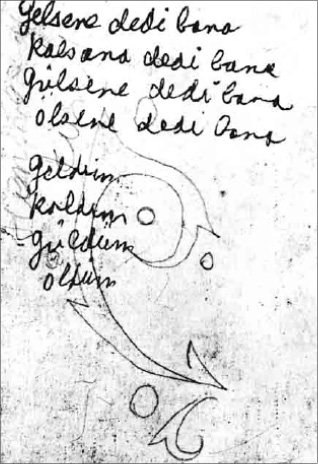 Gelsene dedi bana
Kalsana dedi bana
Gülsene dedi bana
ölsene dedi bana
geldim
kaldım
güldüm
öldüm